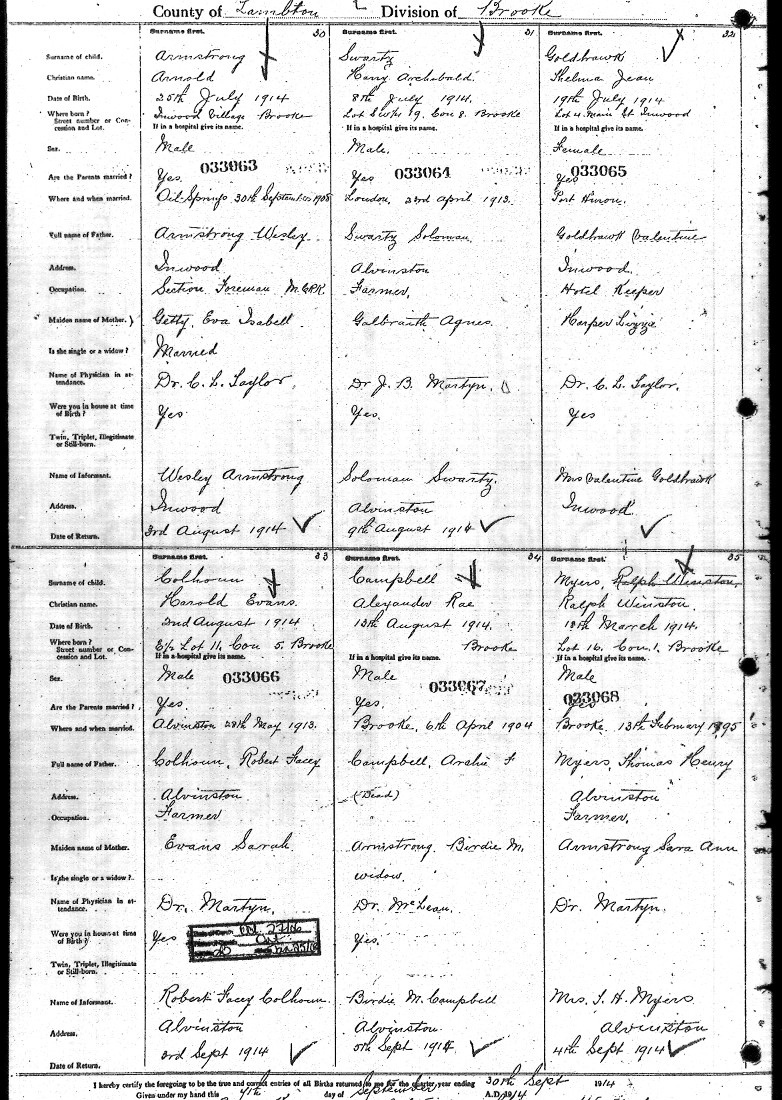 County of Lambton Division of Brooke
Surname first. 30 Surname first. 31 Surname first. 32
Surname of child. Armstrong Swartz Goldhawk
Christian name. Arnold Harry Archibald. Thelma Jean
Date of Birth. 25th July 1914 8th July 1914. 19th July 1914
Where born? Inwood Village Brooke Lot 19, Con 8. Brooke Lot 4. Main St Inwood
Street number or Concession and Lot. If in a hospital give its name. If in a hospital give its name. If in a hospital give its name.
Sex. Male Male. Female
033063 033064 033065
Are the Parents married? Yes. Yes Yes
Where and when married. Oil Springs 30th September 1908 London, 23rd April 1913. Port Huron.
Full name of Father. Armstrong Wesley Swartz Soloman Goldhawk Valentine
Address. Inwood Alvinston Inwood.
Occupation. Section Foreman M.C.R.R. Farmer. Hotel Keeper
Maiden name of Mother. Getty, Eva Isabell Galbraith Agnes Harper Lizzie
Is she single or a widow? Married
Name of Physician in attendance. Dr. C. L. Taylor. Dr J. B. Martyn. Dr. C. L. Taylor.
Were you in house at time of Birth? Yes Yes. Yes
Twin, Triplet, Illegitimate or Still-born.
Name of Informant. Wesley Armstrong Soloman Swartz. Mrs Valentine Goldhawk
Address. Inwood Alvinston Inwood
Date of Return. 3rd August 1914 9th August 1914
Surname first. 33 Surname first. 34 Surname first. 35
Surname of child. Colhoun Campbell Myers, Ralph Winston,
Christian name. Harold Evans. Alexander Rae Ralph Winston.
Date of Birth. 2nd August 1914 13th August 1914. March 1914.
Where born? E½ Lot 11, Con 5. Brooke Brooke Lot 16, Con 1, Brooke
Street number or Concession and Lot. If in a hospital give its name. If in a hospital give its name. If in a hospital give its name.
Sex. Male Male Male
033066 033067 033068
Are the Parents married? Yes. Yes. Yes
Where and when married. Alvinston 28th May 1913. Brooke, 6th April 1904 Brooke, 13th February 1895
Full name of Father. Colhoun, Robert Facey Campbell, Archie F Myers, Thomas Henry
Address. Alvinston (Dead) Alvinston
Occupation. Farmer Farmer.
Maiden name of Mother. Evans Sarah Armstrong Birdie M. Armstrong Sara Ann
Is she single or a widow? widow.
Name of Physician in attendance. Dr. Martyn. Dr. McLean. Dr. Martyn.
Were you in house at time of Birth? Yes Yes.
Twin, Triplet, Illegitimate or Still-born.
Name of Informant. Robert Facey Colhoun Birdie M. Campbell Mrs. T. H. Myers
Address. Alvinston Alvinston. Alvinston
Date of Return. 3rd Sept 1914 5th Sept 1914 4th Sept 1914
I hereby certify the foregoing to be the true and correct entries of all Births returned to me for the quarter year ending 30th Sept 1914
Given under my hand this day of September A.D. 1914